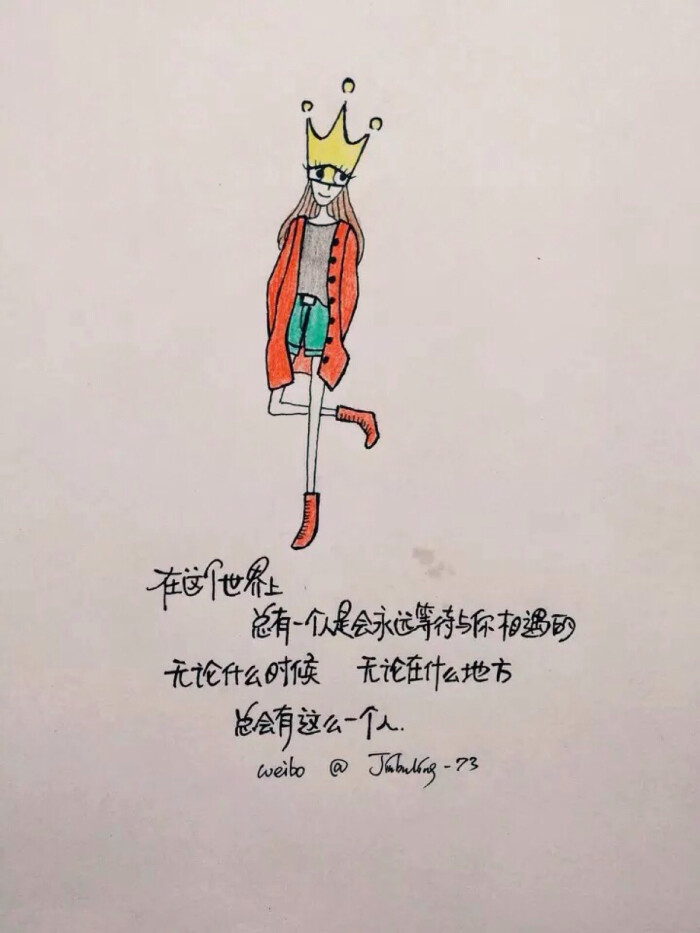 在这个世界上
总有一个人是会永远等待与你相遇的
无论什么时候 无论在什么地方
总会有这么一个人.
weibo @